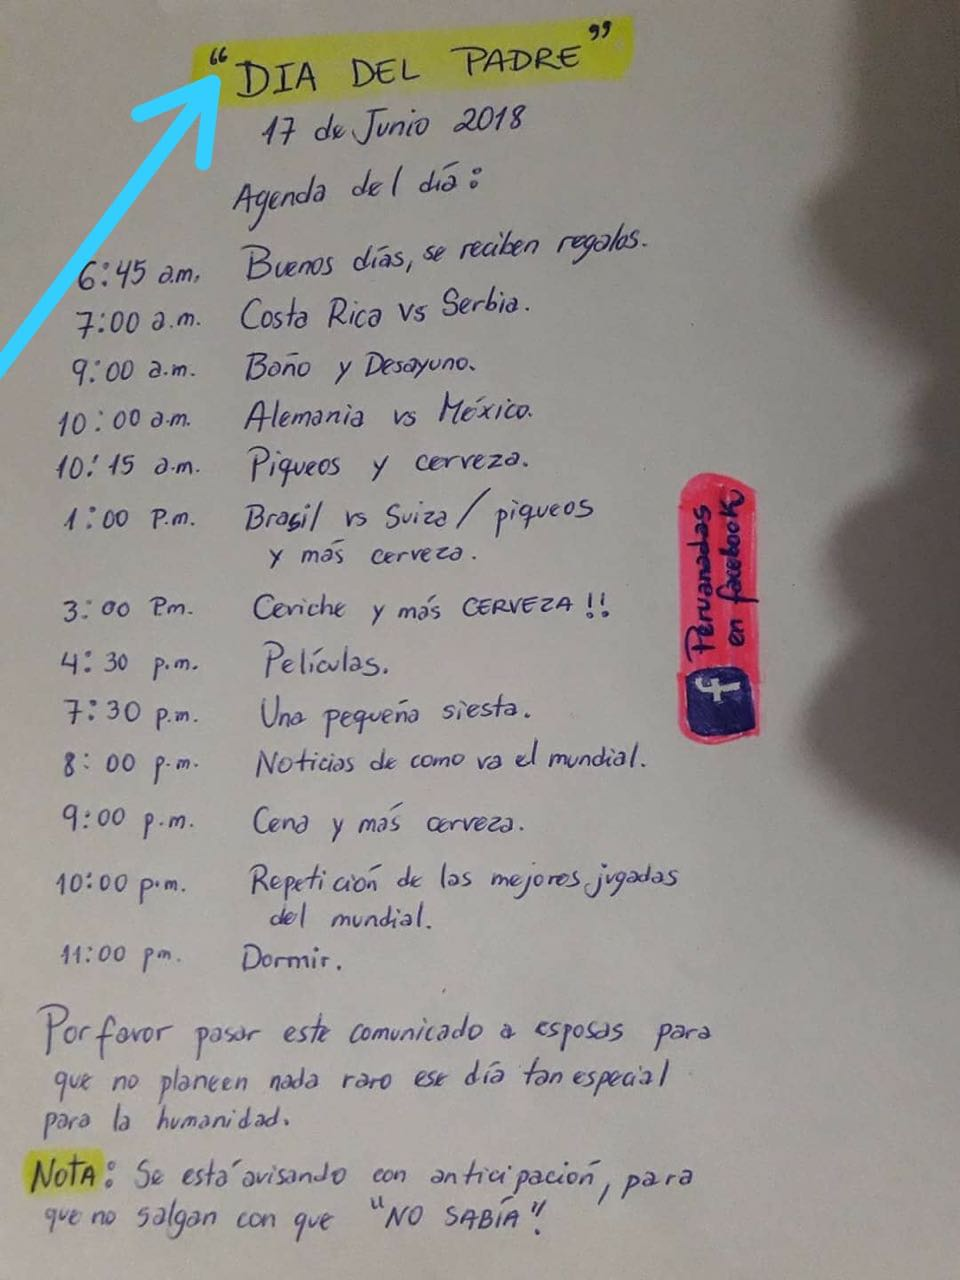 "DIA DEL PADRE"
17 de Junio 2018
Agenda del día:
6:45 a.m. Buenos días, se reciben regalos.
7:00 a.m. Costa Rica vs Serbia.
9:00 a.m. Baño y Desayuno.
10:00 a.m. Alemania vs México.
10:15 a.m. Piqueos y cerveza.
1:00 P.m. Brasil vs Suiza/piqueos
y más cerveza.
3:00 P.m. Ceviche y más CERVEZA!!
4:30 p.m. Películas.
7:30 p.m. Una pequeña siesta.
8:00 p.m. Noticias de como va el mundial.
9:00 p.m. Cena y más cerveza.
10:00 p.m. Repetición de las mejores jugadas
del mundial.
11:00 pm. Dormir.
Por favor pasar este comunicado a esposas para
que no planeen nada raro ese día tan especial
para la humanidad.
NOTA: Se está avisando con anticipación, para
que no salgan con que "NO SABÍA"!
f Peruanadas
en facebook